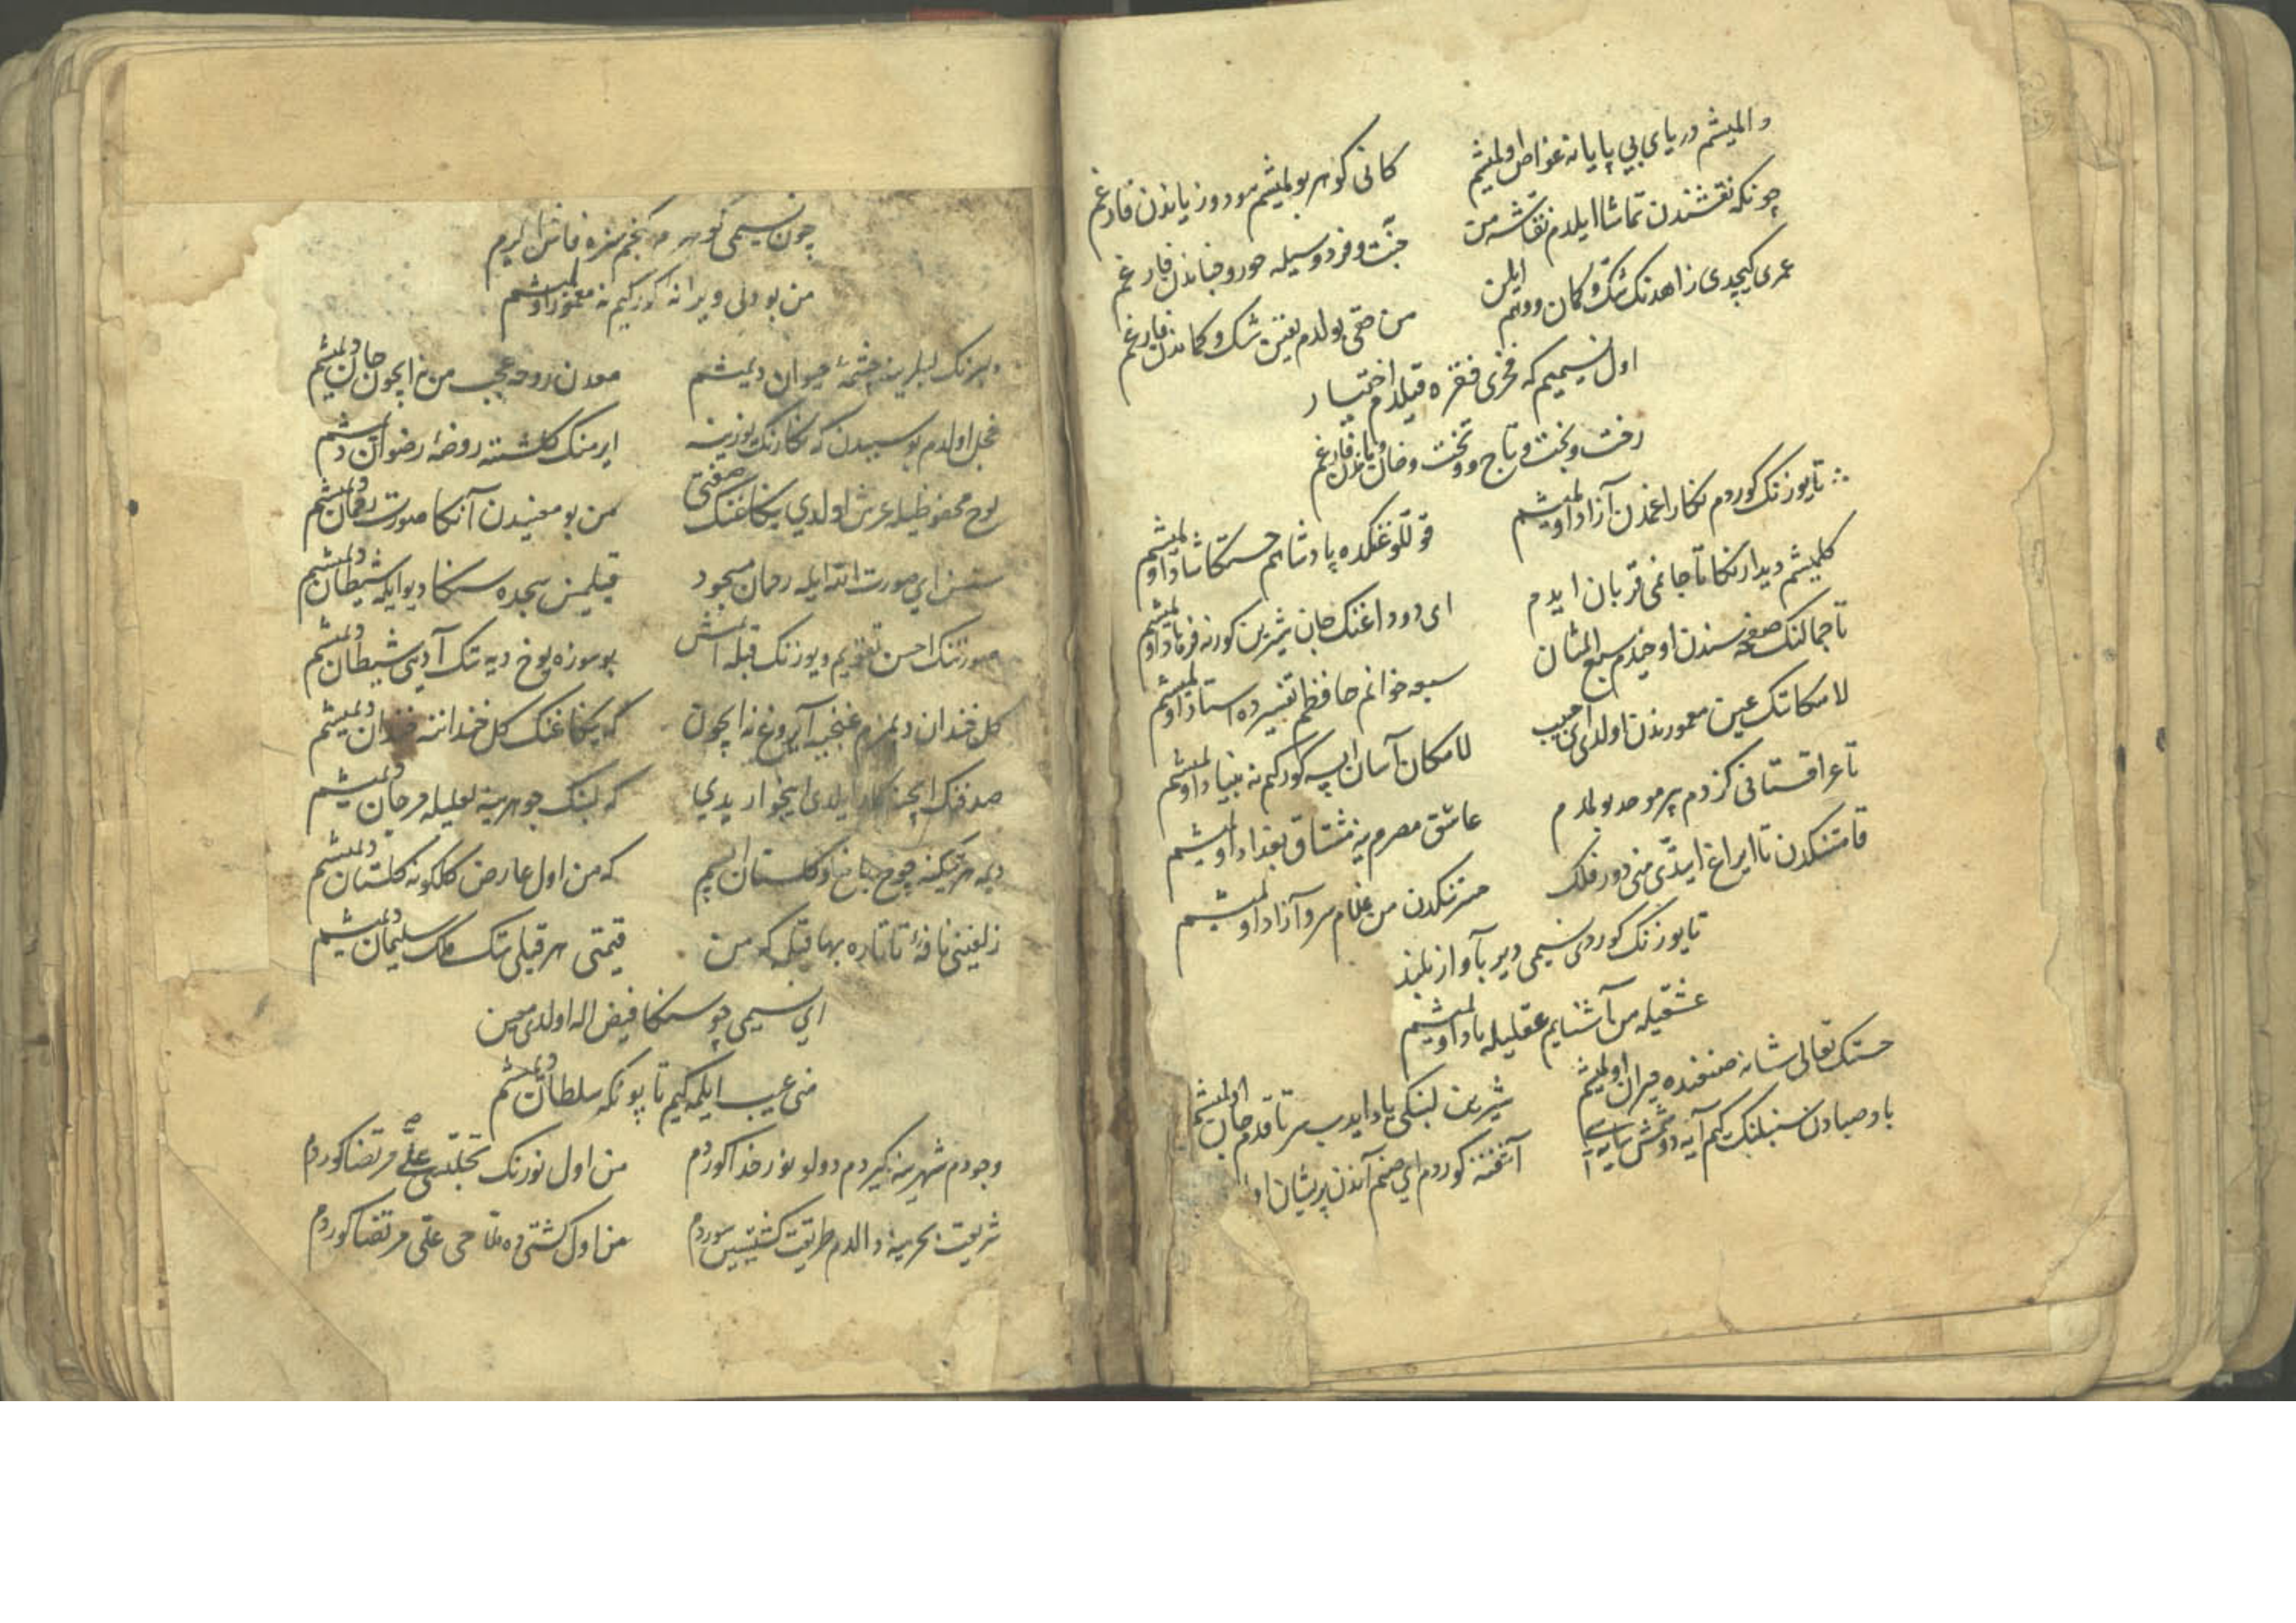 دالمیشم دریای بی پایانه غواص اولمیشم
کانی کوهر بولمیشم سود و زیاندن فارغم
چونکه نقشندن تماشا ایلدم نقاشه من
جنت و فردوسیله حور و جناندن فارغم
عمری کیچدی زاهدنک شک و کمان و وهم ایلن
من حقی بولدم یقین شک و کماندن فارغم
اول نسیمیم که فخری فقره قیلدم اختیار
رخت و بخت و تاج و تخت و خان و ماندن فارغم
تا یوزنک کوردم نکارا غمدن آزاد اولمیشم
قوللوغنکده پادشاهم حسنکا شاد اولمیشم
کلمیشم دیدارنکا تا جانمی قربان ایدم
ای دوداغنک جان شیرین کورنه فرهاد اولمیشم
تا جمالنک صفحه سندن اوخیدم سبع المثان
سبعه خوانم حافظم تفسیرده استاد اولمیشم
لامکاتنک عین معمورندن اولدی ای حبیب
لامکان آسان ایسه کورکیم نه بنیاد اولمیشم
تا عراقستانی کزدم بر موحد بولمدم
عاشق مصرم نه مشتاق بغداد اولمیشم
قامتنکدن تا ایراغ ایتدی منی دور فلک
من غلام سرو آزاد اولمیشم
تا یوزنک کوردی نسیمی دیر بآواز بلند
عشقیله من آشنایم عقلیله یاد اولمیشم
حسنک تعالی شانه صنعنده حیران اولمیشم
شیرین لبنکی یاد ایدب سر تا قدم جان اولمیشم
باد صبادن سنبلنک کیم آیه دوشمش سایه سی
آشفته کوردم ای صنم آندن پریشان
چون نسیمی کوهر
من بو دلی ویرانه کورکیم نه معمور اولمیشم
دلبرنک لبلرینه چشمهٔ حیوان دیمیشم
معدن روحه عجب من نه ایچون جان دیمیشم
خجل اولدم بو سببدن که نکارنک یوزینه
ایرمنک کلشننه روضهٔ رضوان دیمیشم
لوح محفوظیله عرش اولدی ینکاغنک صفتی
من بو معنیدن آنکا صورت رحمان دیمیشم
سنسن ای صورت الله ایله رحمان مسجود
قیلمین سجده سنکا دیو ایکه شیطان دیمیشم
صورتنک احسن تقویم و یوزنک قبله ایمش
بو سوزه یوخ دیه نک آدینی شیطان دیمیشم
کل خندان دیمزم غنچیه آیروغ نه ایچون
که ینکاغنک کل خنداننه خندان دیمیشم
صدفنک ایچنه ایلدی اینجو اریدی
که لبنک جوهرینه لعلیله مرجان دیمیشم
دیمه هر تیکنه چوخ باغ و کلستان ایسیم
که من اول عارض کلکونه کلستان دیمیشم
زلفینی نافهٔ تاتاره بها قیلمه که من
قیمتی هر قیلی نک ملک سلیمان دیمیشم
ای نسیمی چو سنکا فیض اله اولدی معین
منی عیب ایلمه کیم تاپونکه سلطان دیمیشم
وجودم شهرینه کیردم دولو نور خدا کوردم
من اول نورنک تجلیسی علی مرتضا کوردم
شریعت بحرینه دالدم طریقت کشتیسین سوردم
من اول کشتی ده ملاحی علی مرتضا کوردم